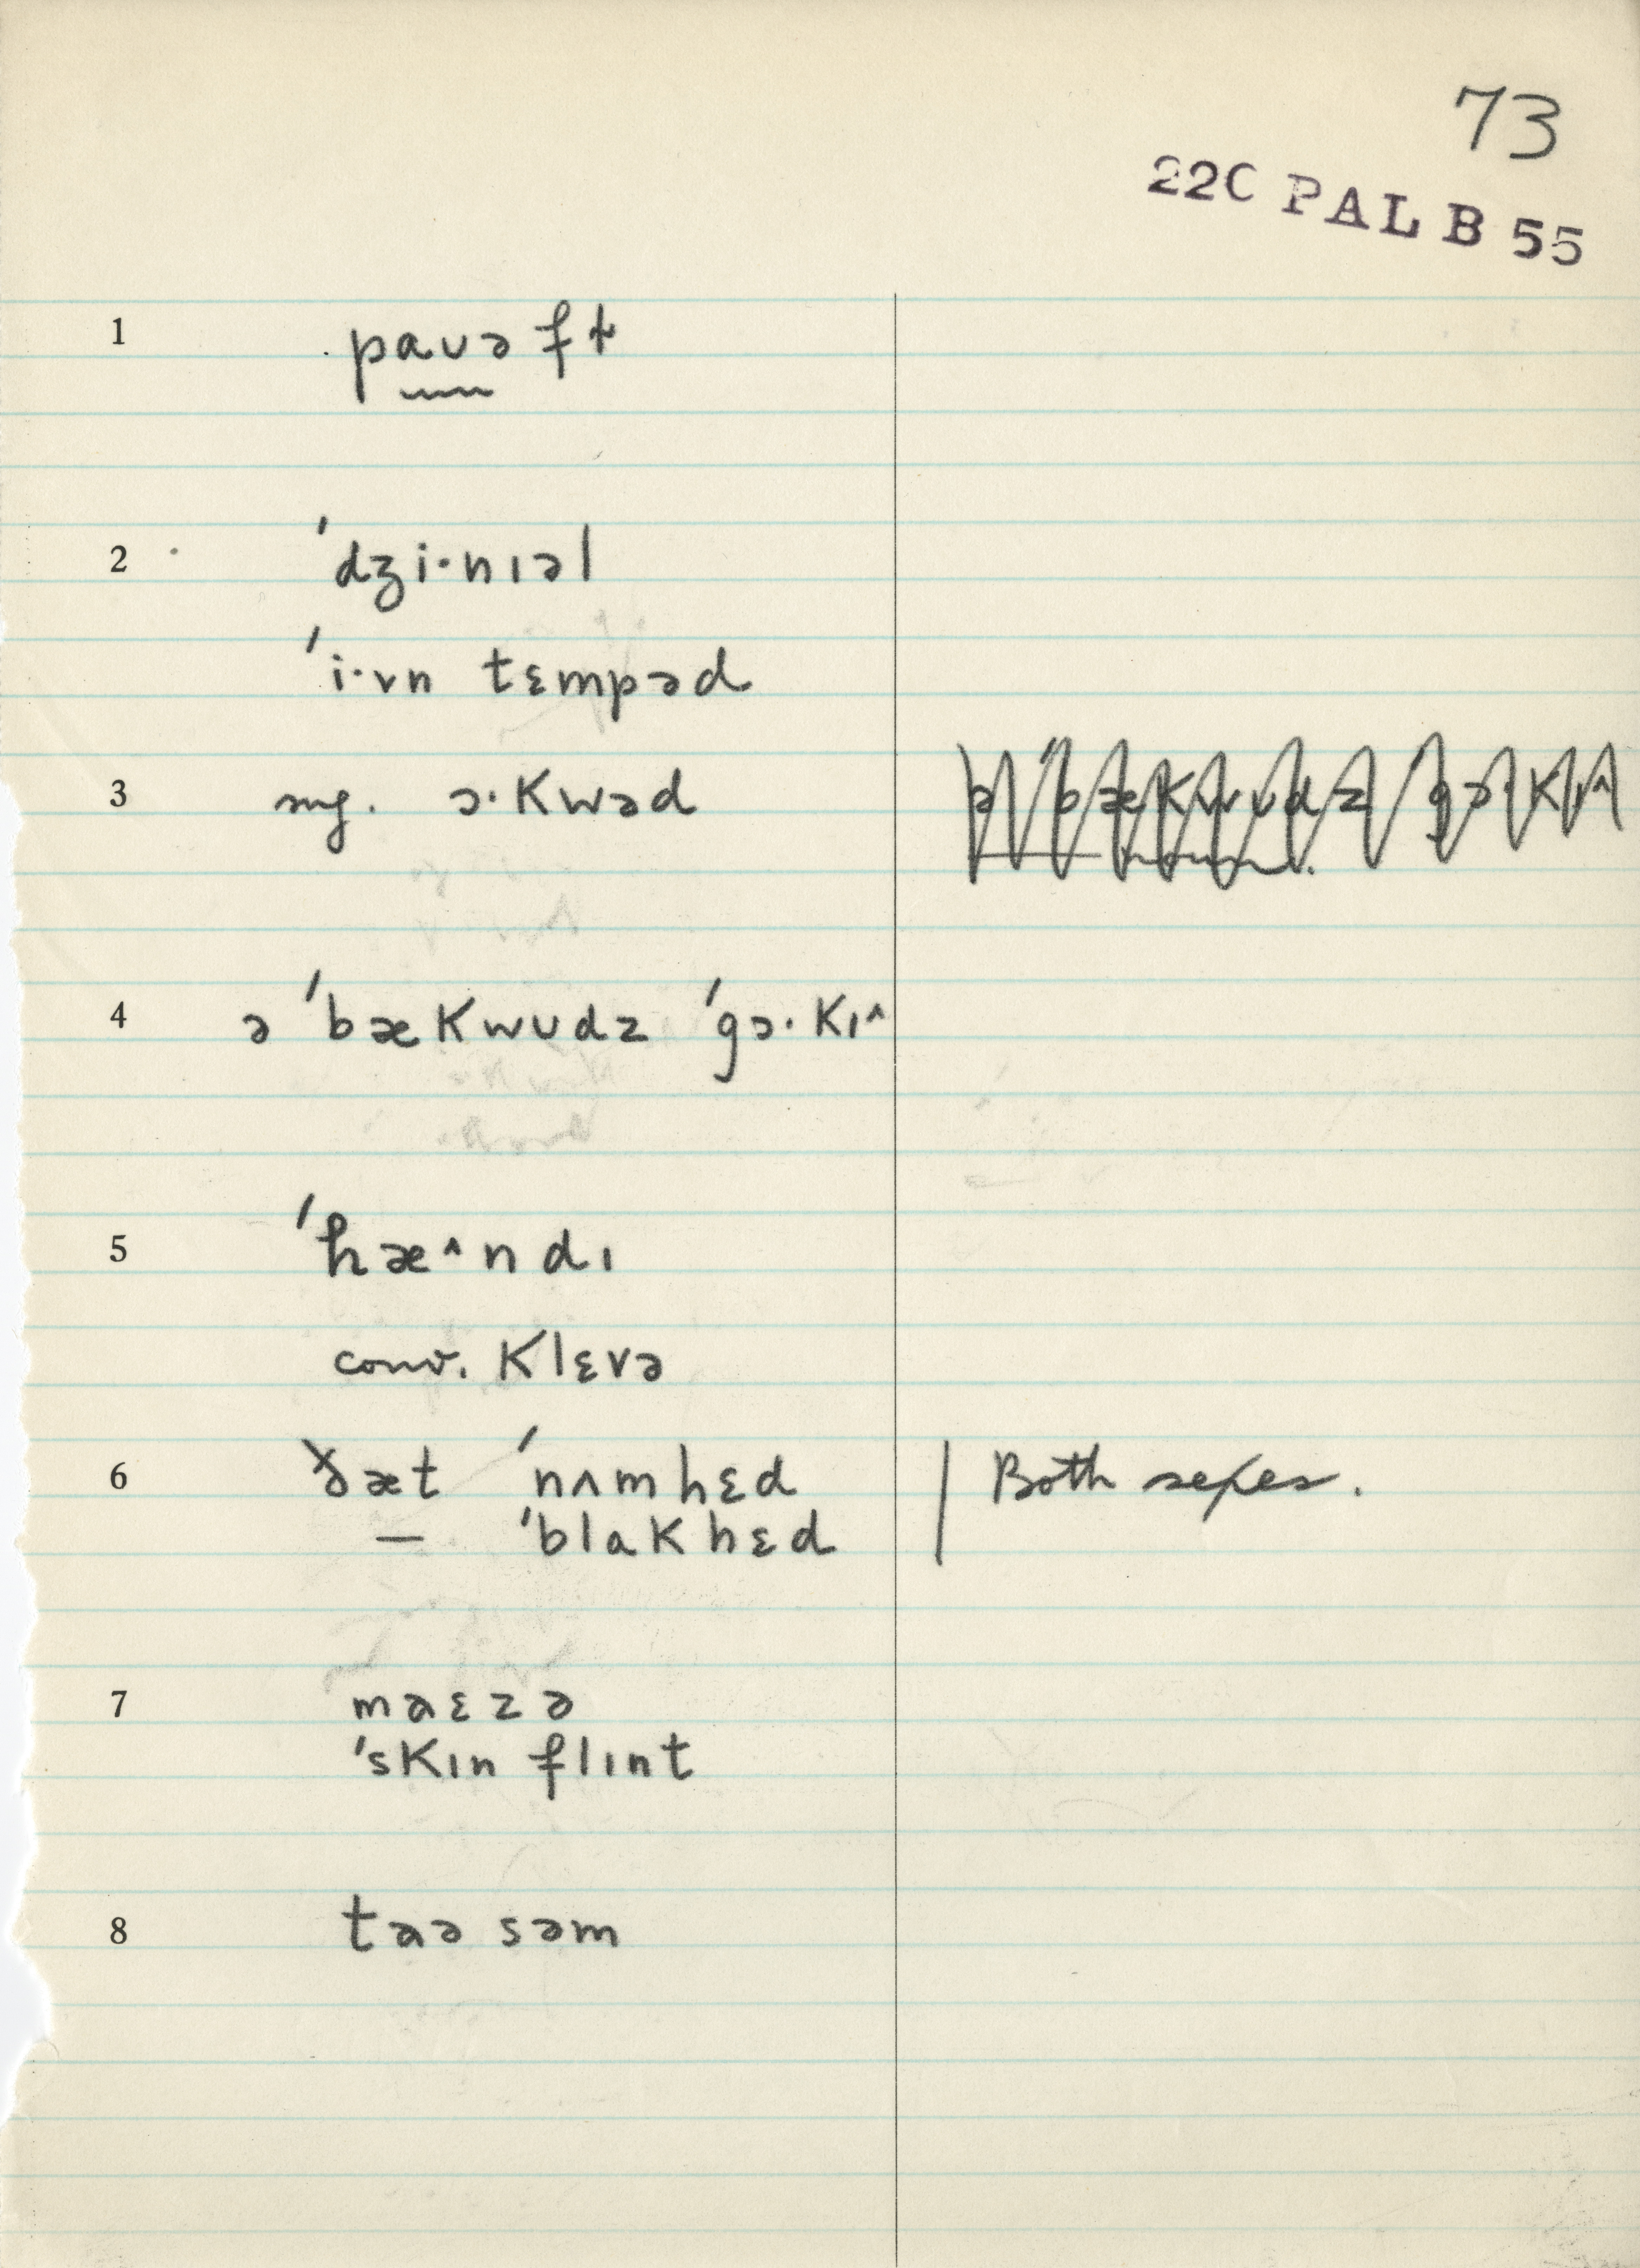 73
22C PAL B 55
1 paʋəfɫ
2 ˈdʒi·nɪəl
ˈi·vn tɛmpəd
3 sug. ɔ·Kwəd
4 ə ˈbæKwʊdz ˈgɔ·Kɪ^
5 ˈhæ^ndɪ
conv. Klɛvə
6 ðæt ˈnʌmhɛd | Both sexes.
— ˈblaKhɛd
7 maɛzə
ˈsKɪn flɪnt
8 taə səm